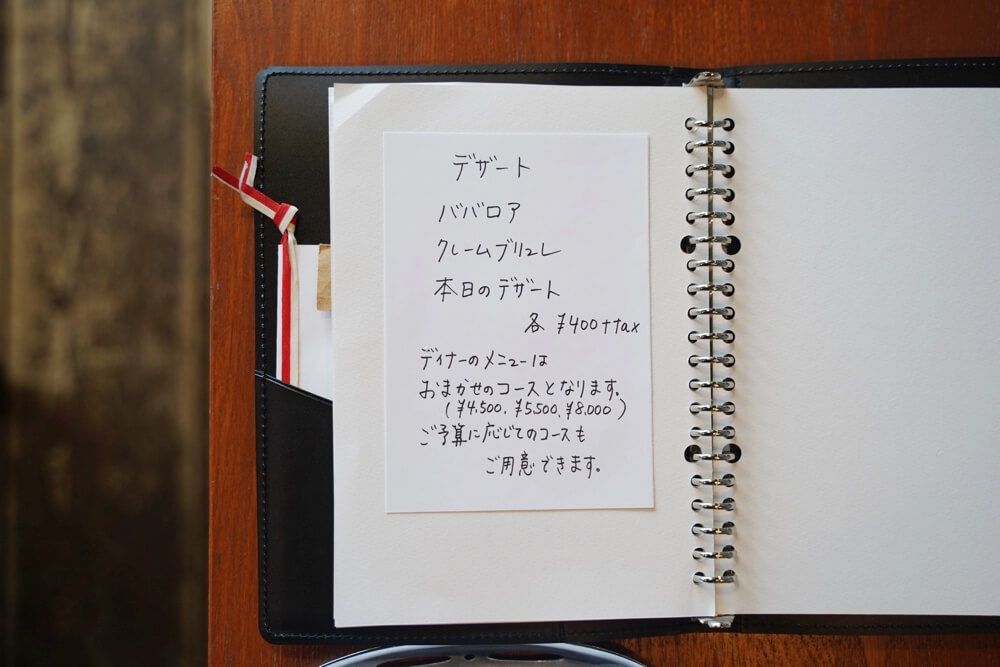 デザート
ババロア
クレームブリュレ
本日のデザート
各 ¥400+tax
ディナーのメニューは
おまかせのコースとなります。
(¥4,500, ¥5,500, ¥8,000)
ご予算に応じてのコースも
ご用意できます。